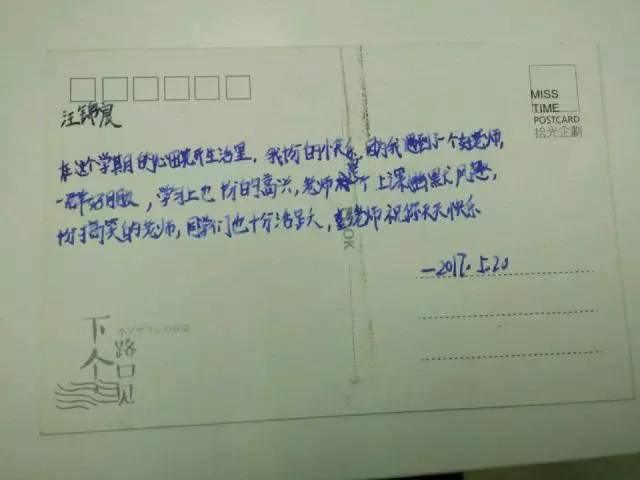 MISS
TIME
POSTCARD
拾光企劃
汪锦良
在这个学期的心田苑所生活里，我份的快乐，因为我遇到了一个好老师，
一群好朋友，学习上也十份的高兴，老师是个上课幽默风趣，
份外高笑的老师，同学们也十分活跃，老师祝你天天快乐
OOK
—2017.5.20
下个路口见